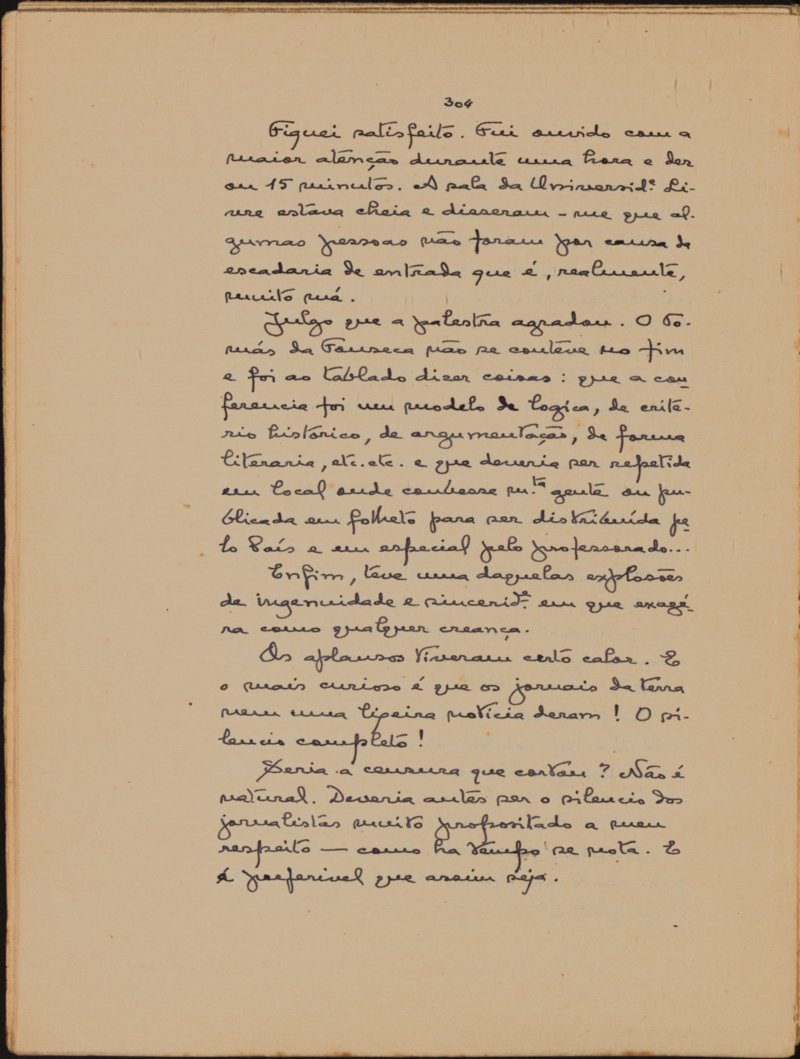 304
Fiquei satisfeito. Fui ouvido com a
maior atenção durante uma hora e dez
ou 15 minutos. A sala da Universid.e Li-
vre estava cheia e disseram-me que al-
gumas pessoas não foram por causa da
escadaria de entrada que é, realmente,
muito má.
Julgo que a palestra agradou. O To-
más da Fonseca não se conteve no fim
e foi ao tablado dizer coisas: que a con-
ferencia foi um modelo de logica, de crité-
rio histórico, de argumentação, de forma
literaria, etc. etc. e que deveria ser repetida
em local onde coubesse m.ta gente ou pu-
blicada em folheto para ser distribuída pe-
lo País e em especial pelo professorado...
Enfim, teve uma daquelas explosões
de ingenuidade e sincerid.e em que exagé-
ra como qualquer creança.
Os aplausos tiveram certo calor. E
o mais curioso é que os jornais da terra
nem uma ligeira notícia deram! O si-
lencio completo!
Seria a censura que cortou? Não é
natural. Deveria antes ser o silencio dos
jornalistas muito propositado a meu
respeito — como ha tempo se nota. E
é preferivel que assim seja.